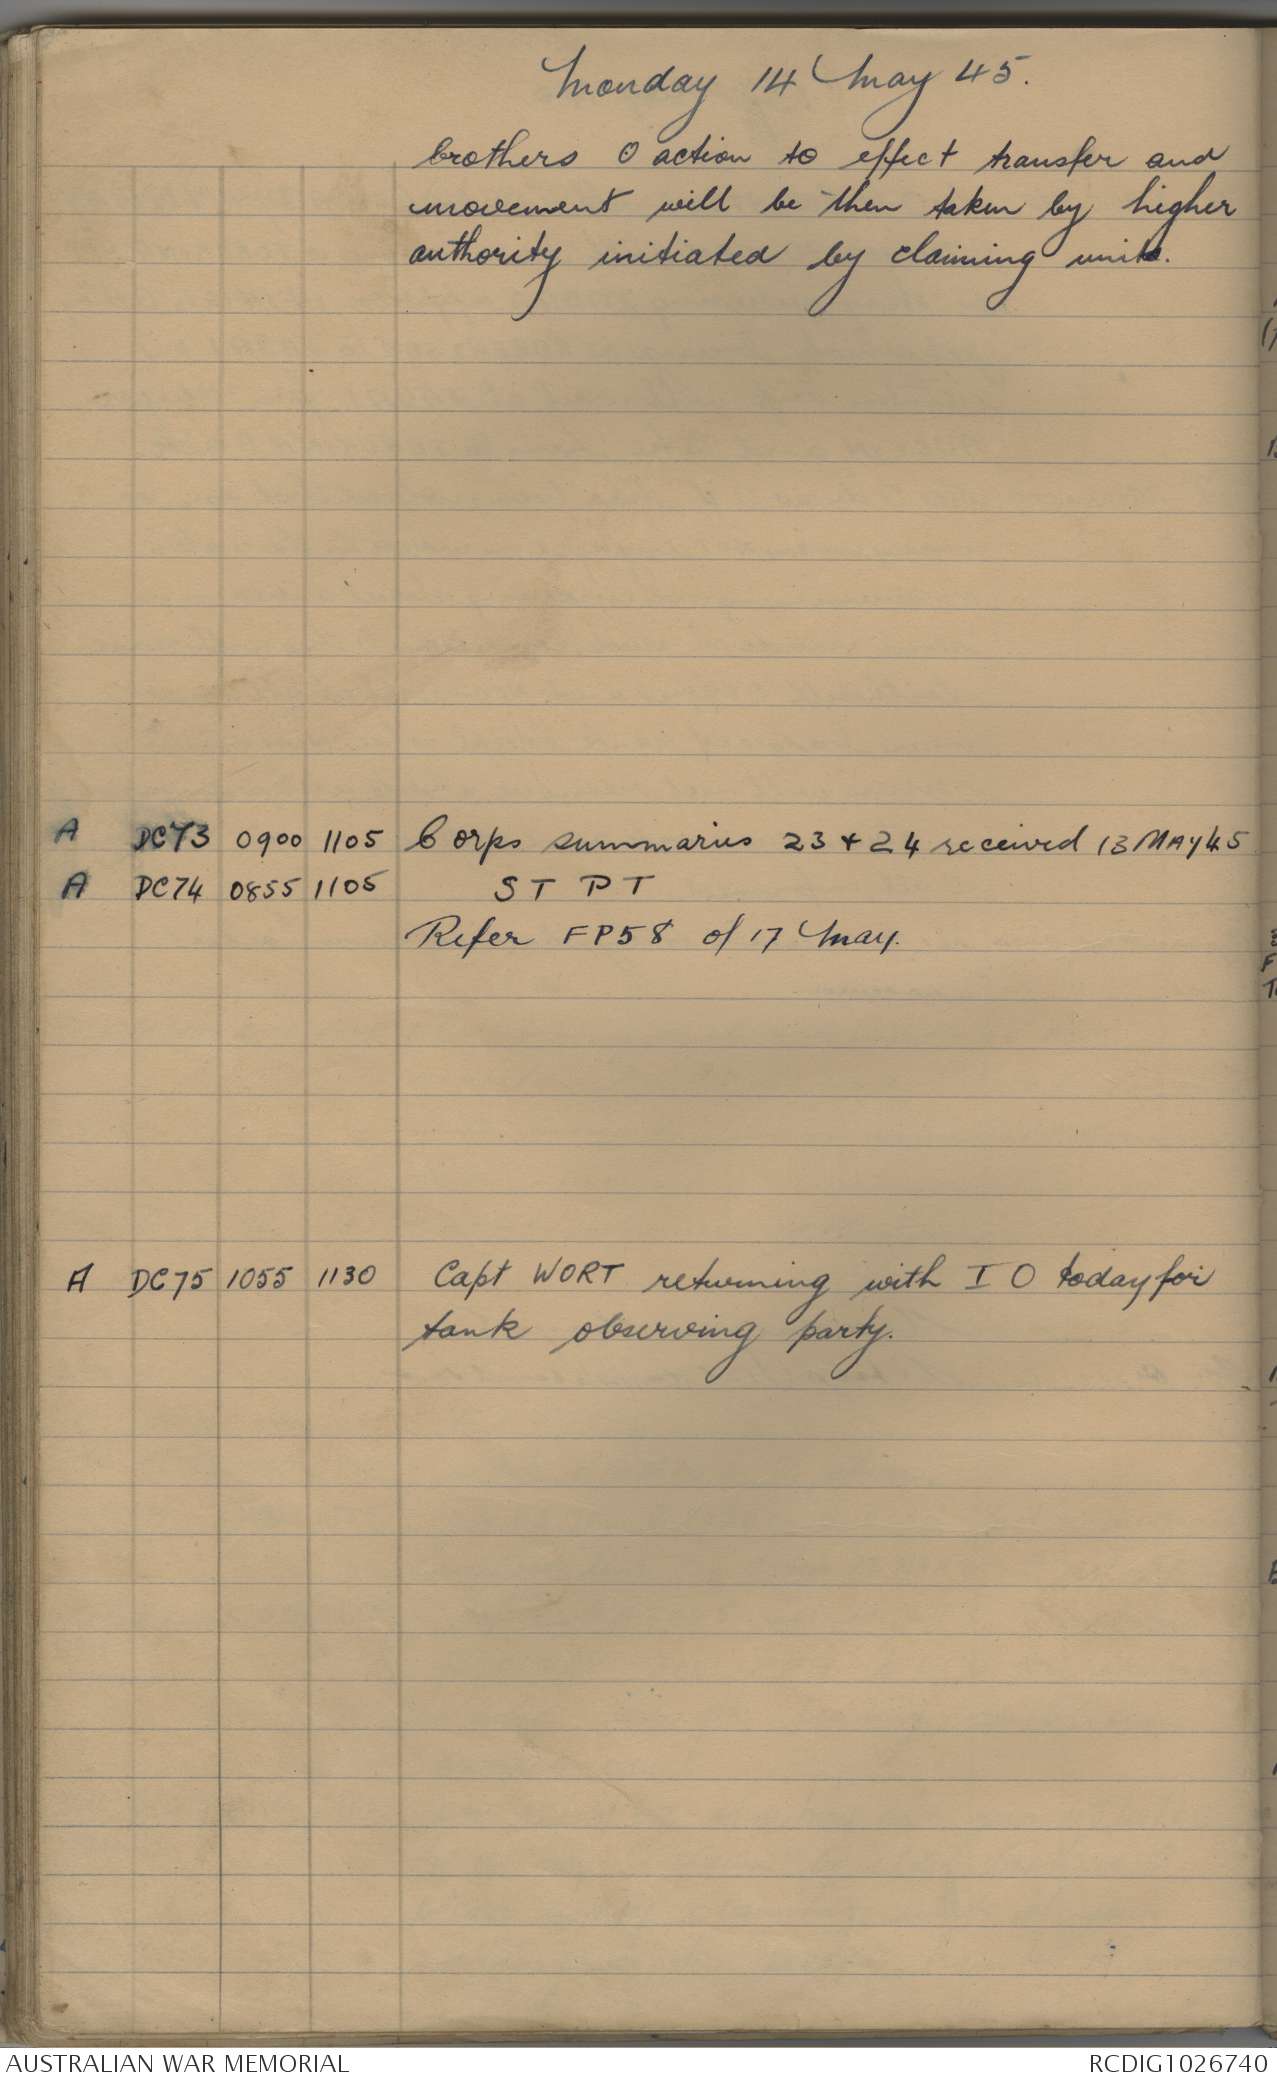 Monday 14 May 45.
brothers O action to effect transfer and
movement will be then taken by higher
authority initiated by claiming units.
A DC73 0900 1105 Corps summaries 23 + 24 received 13 MAY 45
A DC74 0855 1105 ST PT
Refer FP58 of 17 May.
A DC75 1055 1130 Capt WORT returning with I O today for
tank observing party.
AUSTRALIAN WAR MEMORIAL
RCDIG1026740